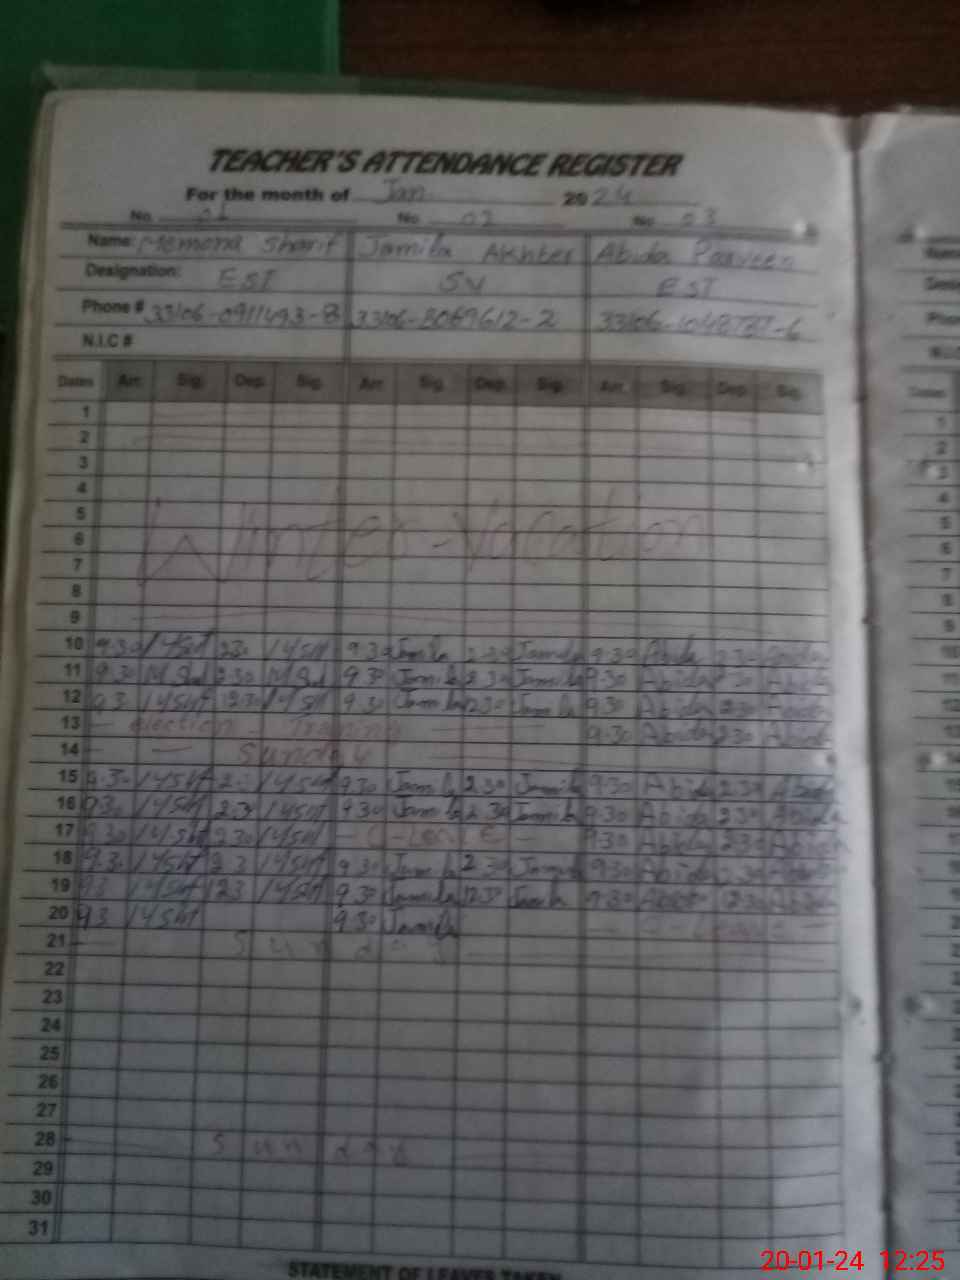 TEACHER'S ATTENDANCE REGISTER
For the month of Jan 2024
No 01 No 02 No 03
Name: Memona Sharif Jamila Akhter Abida Parveen
Designation: EST SV EST
Phone # 33106-0911493-8 33106-8069612-2
N.I.C #
Dates Arr. Sig. Dep. Sig. Arr. Sig. Dep. Sig. Arr. Sig. Dep. Sig.
1
2
3
4
5
6 Winter-Vacation
7
8
9
10 9.30 2.30 9.30 Jamila 2.30 Jamila 9.30 Abida 2.30 Abida
11 9.30 2.30 9.30 Jamila 2.30 Jamila 9.30 Abida 2.30 Abida
12 9.3 12.30 9.30 Jamila 12.30 Jamila 9.30 Abida 12.30 Abida
13 - election - Training 9.30 Abida 2.30 Abida
14 - Sunday
15 9.30 2.3 9.30 Jamila 2.30 Jamila 9.30 Abida 2.30 Abida
16 9.30 2.3 9.30 Jamila 2.30 Jamila 9.30 Abida 2.30 Abida
17 9.30 2.30 - C-Leave - 9.30 Abida 2.30 Abida
18 9.30 2.3 9.30 Jamila 2.30 Jamila 9.30 Abida 2.30 Abida
19 9.3 12.3 9.30 Jamila 12.30 Jamila 9.30 Abida 12.30 Abida
20 9.3 9.30 Jamila - C-Leave -
21 Sunday
22
23
24
25
26
27
28 Sunday
29
30
31
STATEMENT OF LEAVES TAKEN
20-01-24 12:25